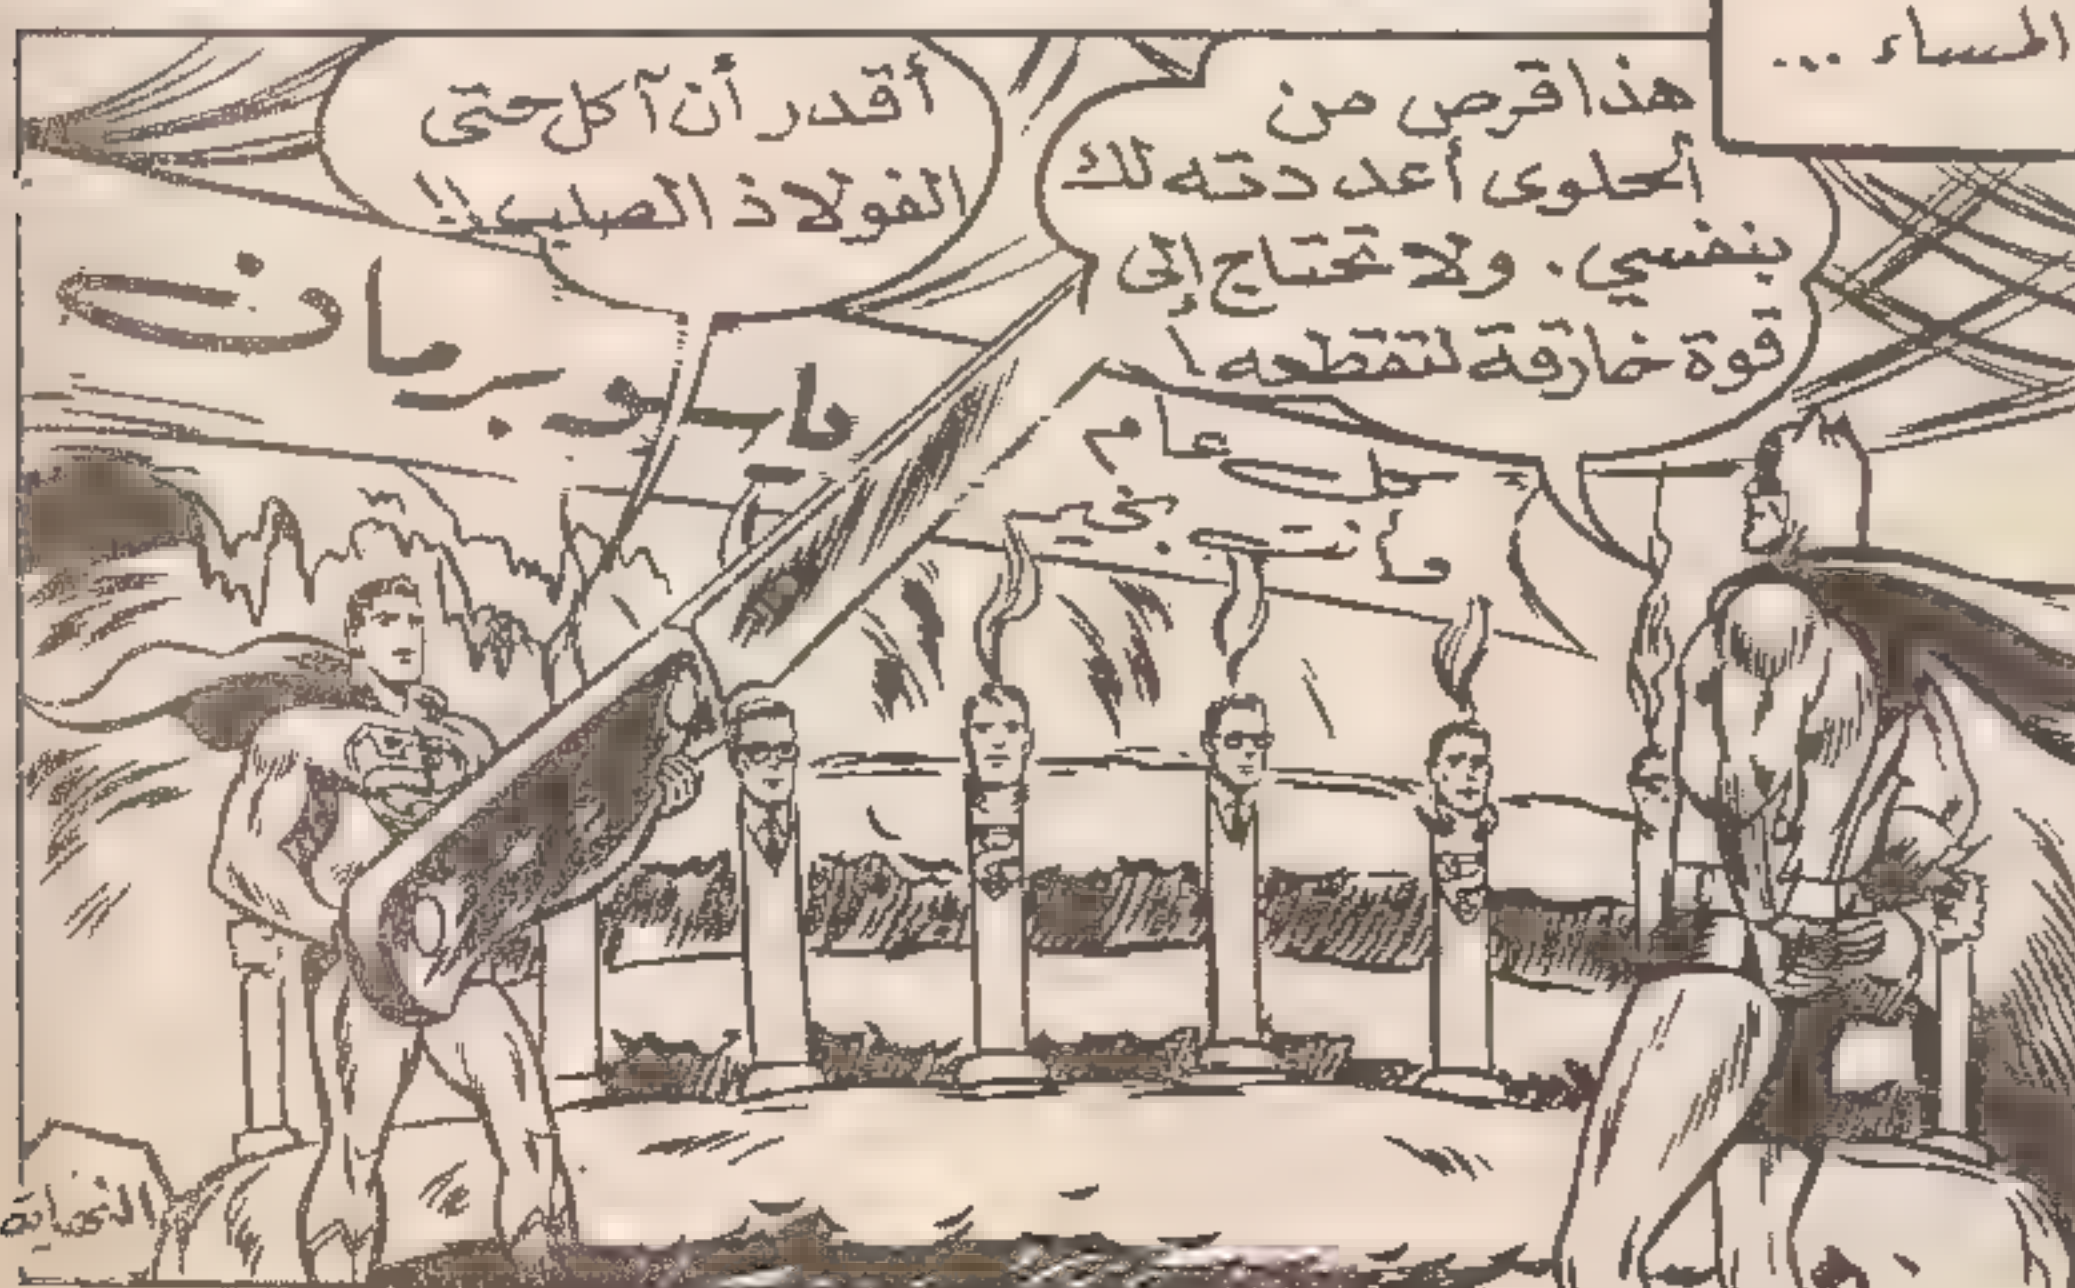 المساء ...
هذا قرص من
الحلوى أعددته لك
بنفسي. ولا تحتاج إلى
قوة خارقة لتقطعه!
أقدر أن آكل حتى
الفولاذ الصلب!!
كل عام
وأنت بخير
يا سوبرمان
النهاية